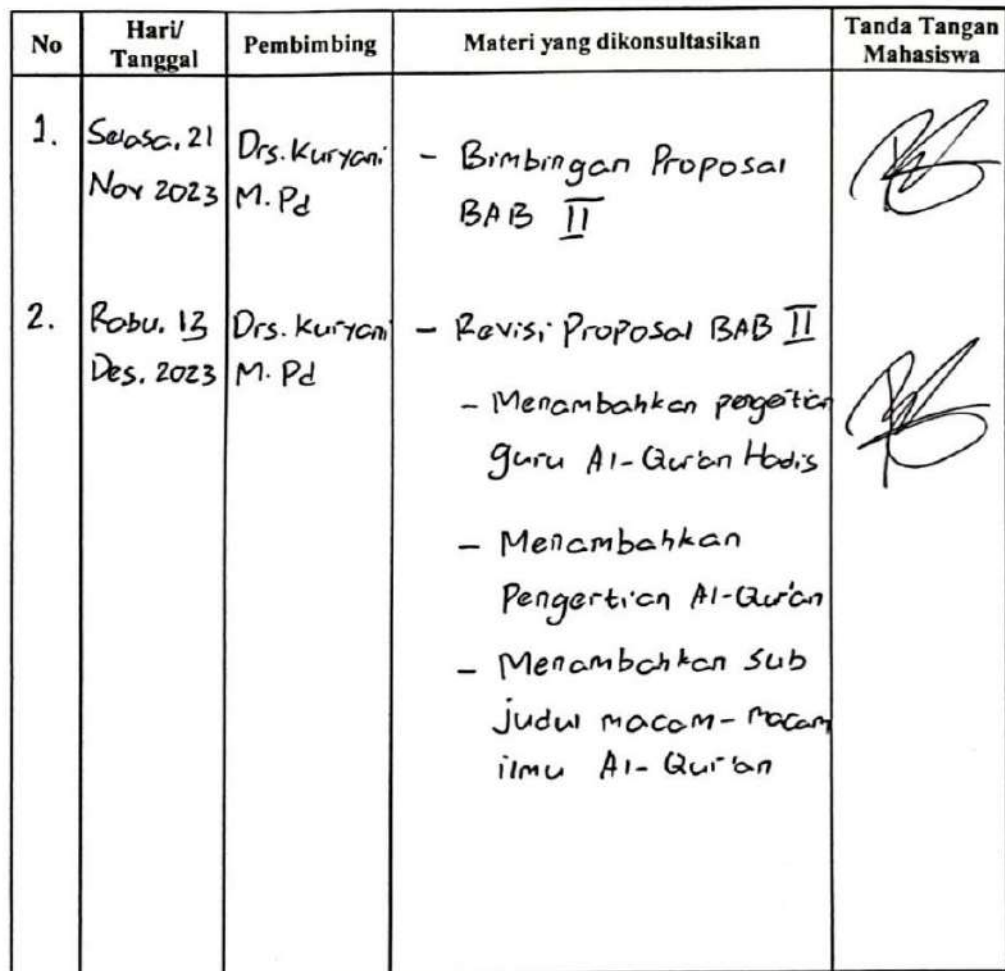 No
Hari/
Tanggal
Pembimbing
Materi yang dikonsultasikan
Tanda Tangan
Mahasiswa
1.
Selasa, 21
Nov 2023
Drs. Kuryani
M. Pd
- Bimbingan Proposal
BAB II
2.
Rabu, 13
Des. 2023
Drs. Kuryani
M. Pd
- Revisi Proposal BAB II
- Menambahkan pengertian
guru Al-Qur'an Hadis
- Menambahkan
Pengertian Al-Qur'an
- Menambahkan Sub
judul macam-macam
ilmu Al-Qur'an